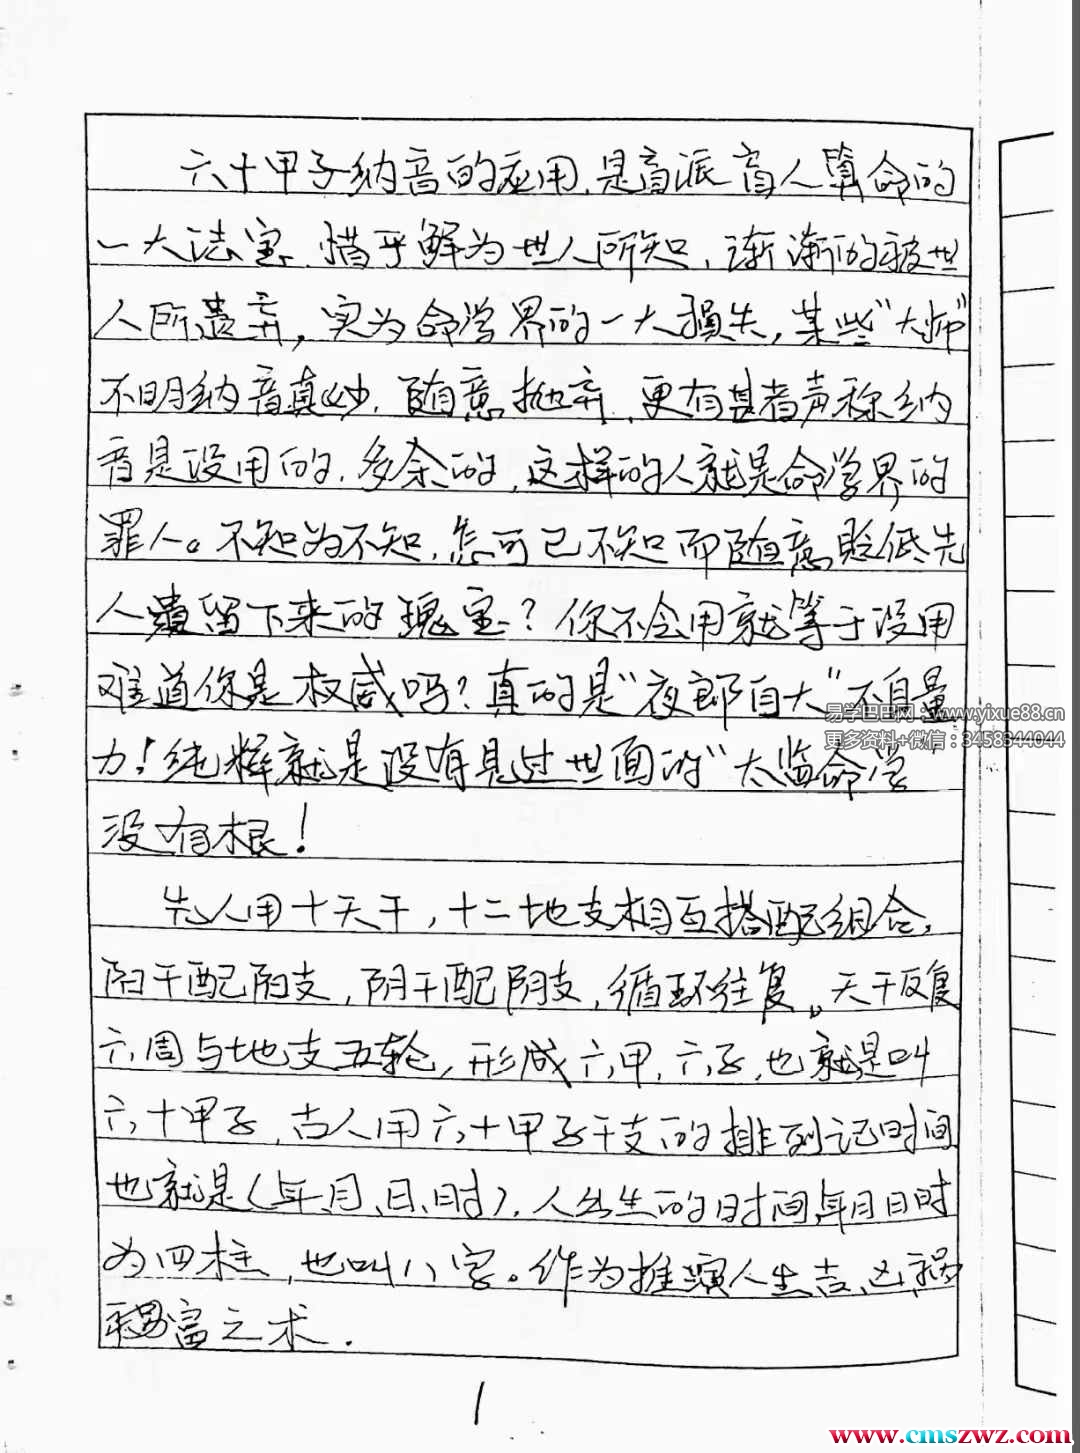 六十甲子纳音的应用,是盲派盲人算命的
一大法宝.惜乎鲜为世人所知,渐渐的被世
人所遗弃,实为命学界的一大损失,某些"大师"
不明纳音真妙,随意抛弃,更有甚者声称纳
音是没用的,多余的,这样的人就是命学界的
罪人。不知为不知,怎可已不知而随意贬低先
人遗留下来的瑰宝?你不会用就等于没用
难道你是权威吗?真的是"夜郎自大"不自量
力!纯粹就是没有见过世面的"太监命学"
没有根!
先人用十天干,十二地支相互搭配组合,
阳干配阳支,阴干配阴支,循环往复。天干反复
六周与地支五轮,形成六甲,六子,也就是叫
六十甲子,古人用六十甲子干支的排列记时间
也就是(年、月、日、时),人出生的时间年月日时
为四柱,也叫八字。作为推演人生吉、凶、祸
富之术.
1
易学巴巴网:www.yixue88.cn
更多资料+微信:3458344044
www.cmszwz.com